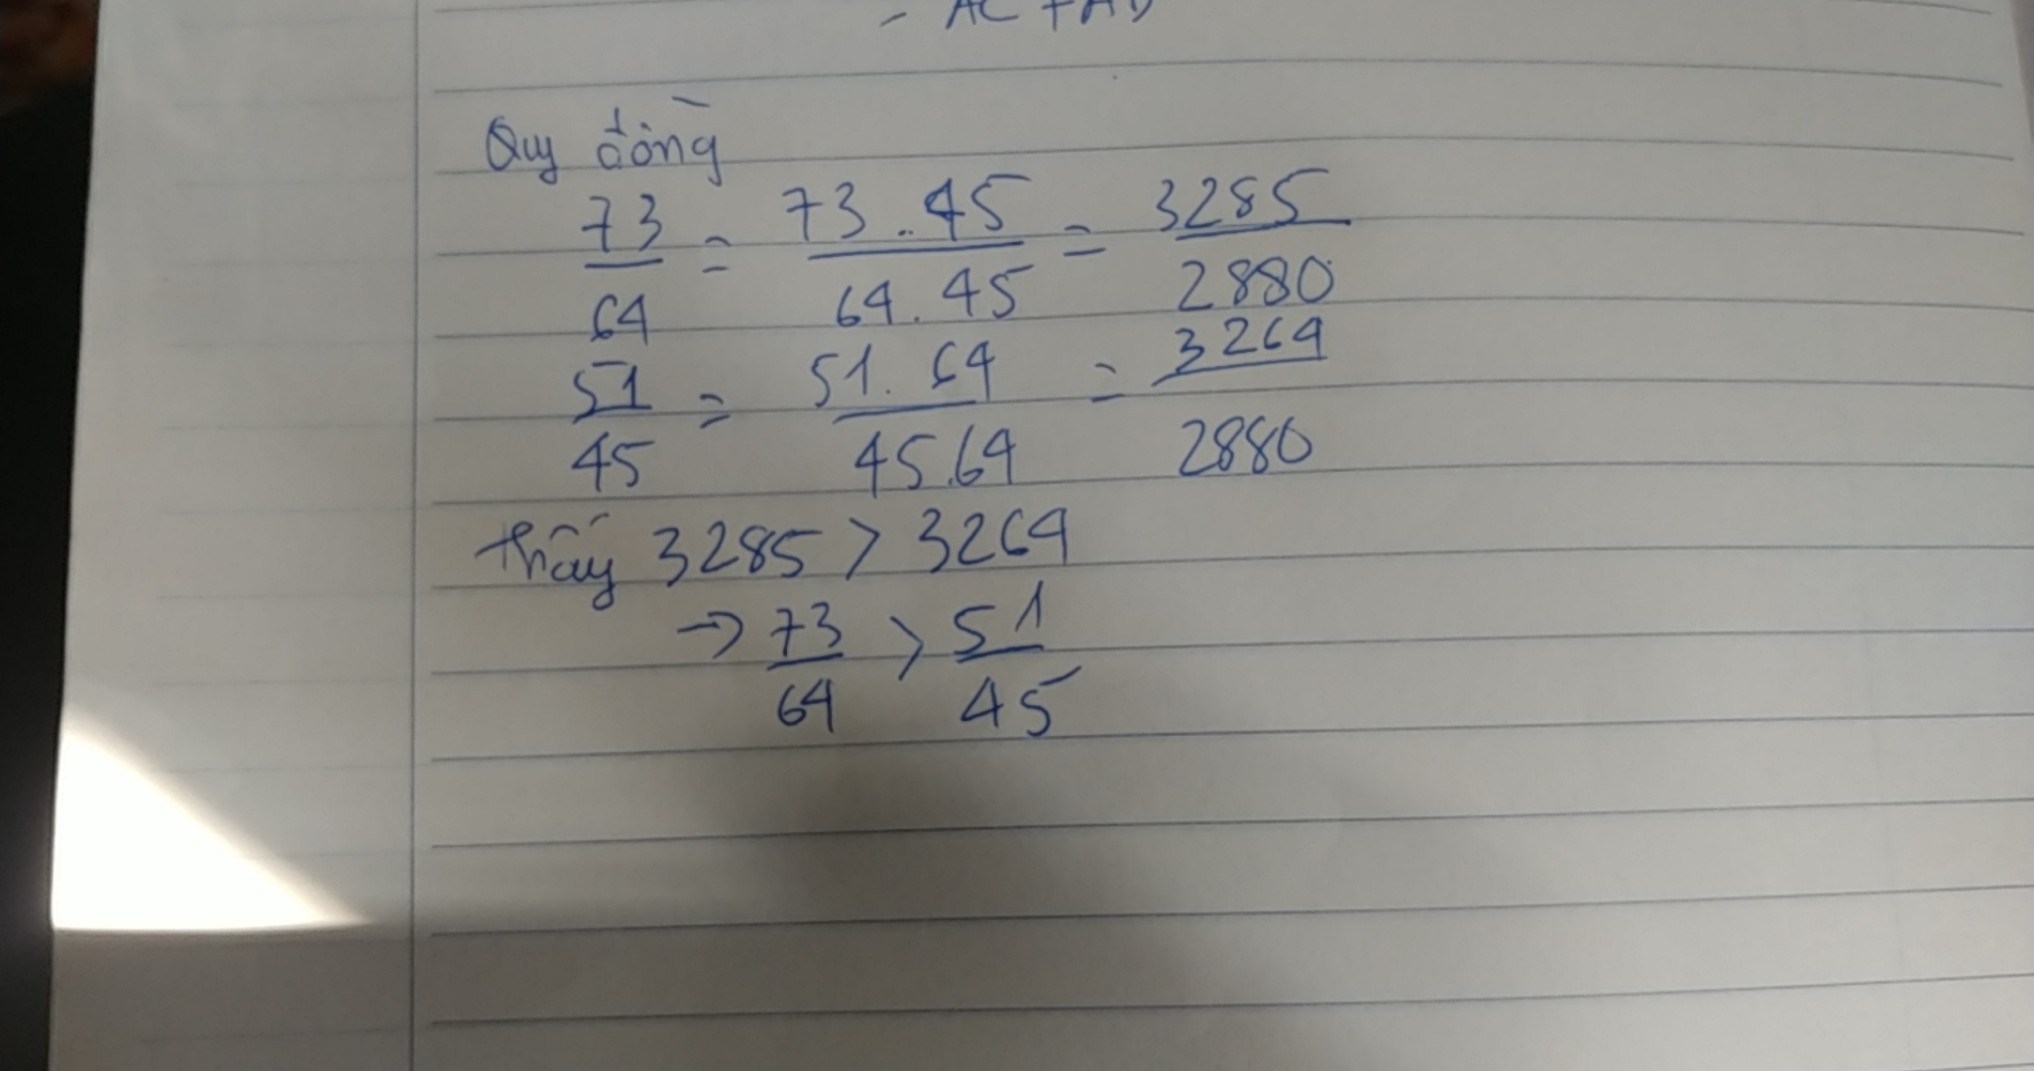 Quy đồng
73/64 = 73.45/64.45 = 3285/2880
51/45 = 51.64/45.64 = 3264/2880
Thấy 3285 > 3264
→ 73/64 > 51/45